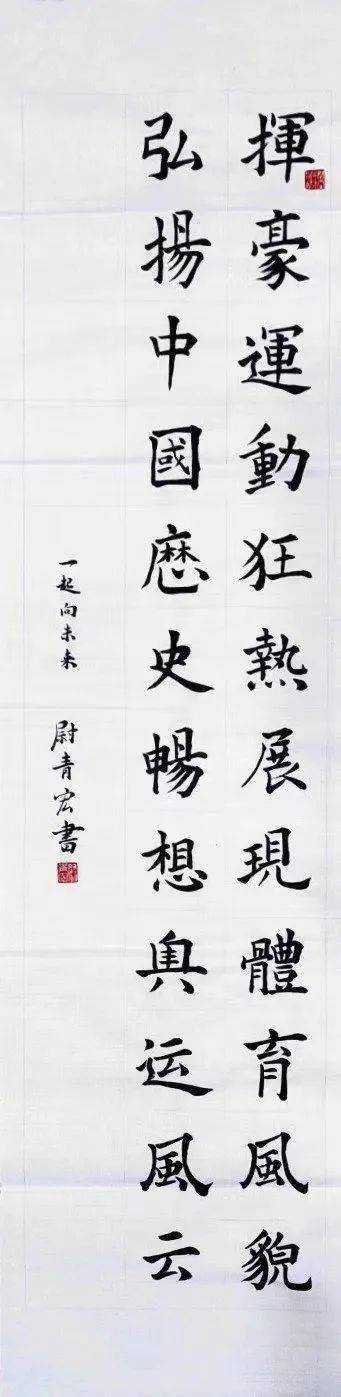 揮豪運動狂熱展現體育風貌
弘揚中國歷史暢想奥运風云
一起向未来
尉青宏書